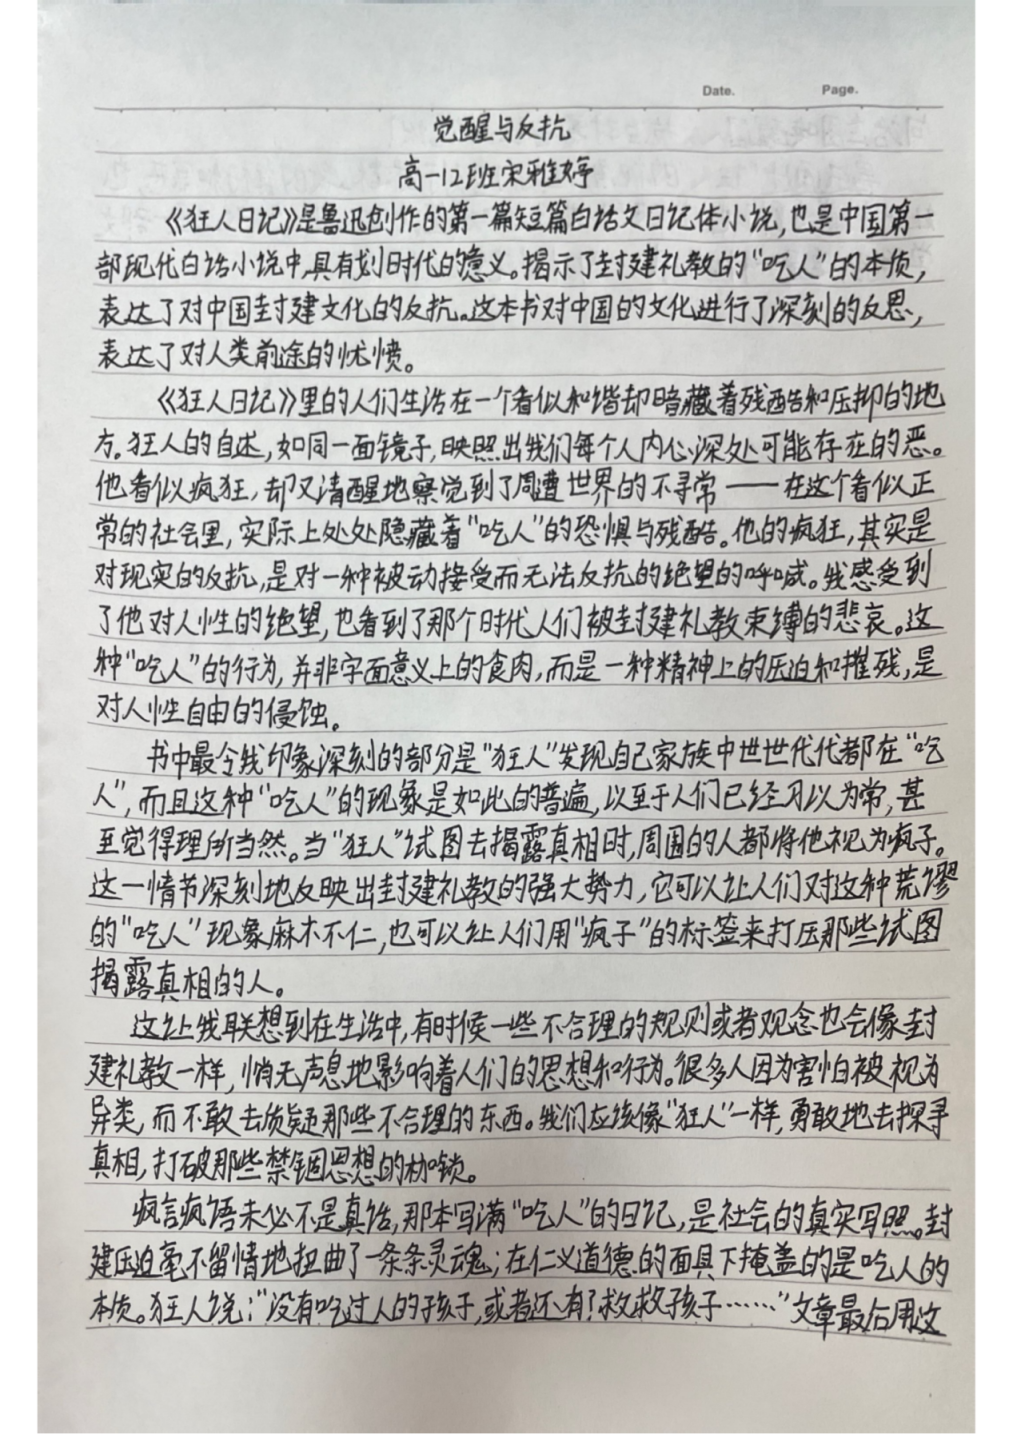 Date. Page.
觉醒与反抗
高一12班宋雅婷
《狂人日记》是鲁迅创作的第一篇短篇白话文日记体小说,也是中国第一
部现代白话小说中,具有划时代的意义。揭示了封建礼教的“吃人”的本质,
表达了对中国封建文化的反抗。这本书对中国的文化进行了深刻的反思,
表达了对人类前途的忧愤。
《狂人日记》里的人们生活在一个看似和谐却暗藏着残酷和压抑的地
方。狂人的自述,如同一面镜子,映照出我们每个人内心深处可能存在的恶。
他看似疯狂,却又清醒地察觉到了周遭世界的不寻常——在这个看似正
常的社会里,实际上处处隐藏着“吃人”的恐惧与残酷。他的疯狂,其实是
对现实的反抗,是对一种被动接受而无法反抗的绝望的呼喊。我感受到
了他对人性的绝望,也看到了那个时代人们被封建礼教束缚的悲哀。这
种“吃人”的行为,并非字面意义上的食肉,而是一种精神上的压迫和摧残,是
对人性自由的侵蚀。
书中最令我印象深刻的部分是“狂人”发现自己家族中世世代代都在“吃
人”,而且这种“吃人”的现象是如此的普遍,以至于人们已经习以为常,甚
至觉得理所当然。当“狂人”试图去揭露真相时,周围的人都将他视为疯子。
这一情节深刻地反映出封建礼教的强大势力,它可以让人们对这种荒谬
的“吃人”现象麻木不仁,也可以让人们用“疯子”的标签来打压那些试图
揭露真相的人。
这让我联想到在生活中,有时候一些不合理的规则或者观念也会像封
建礼教一样,悄无声息地影响着人们的思想和行为。很多人因为害怕被视为
异类,而不敢去质疑那些不合理的东西。我们应该像“狂人”一样,勇敢地去探寻
真相,打破那些禁锢思想的枷锁。
疯言疯语未必不是真话,那本写满“吃人”的日记,是社会的真实写照。封
建压迫毫不留情地扭曲了一条条灵魂;在仁义道德的面具下掩盖的是吃人的
本质。狂人说:“没有吃过人的孩子,或者还有?救救孩子……”文章最后用这